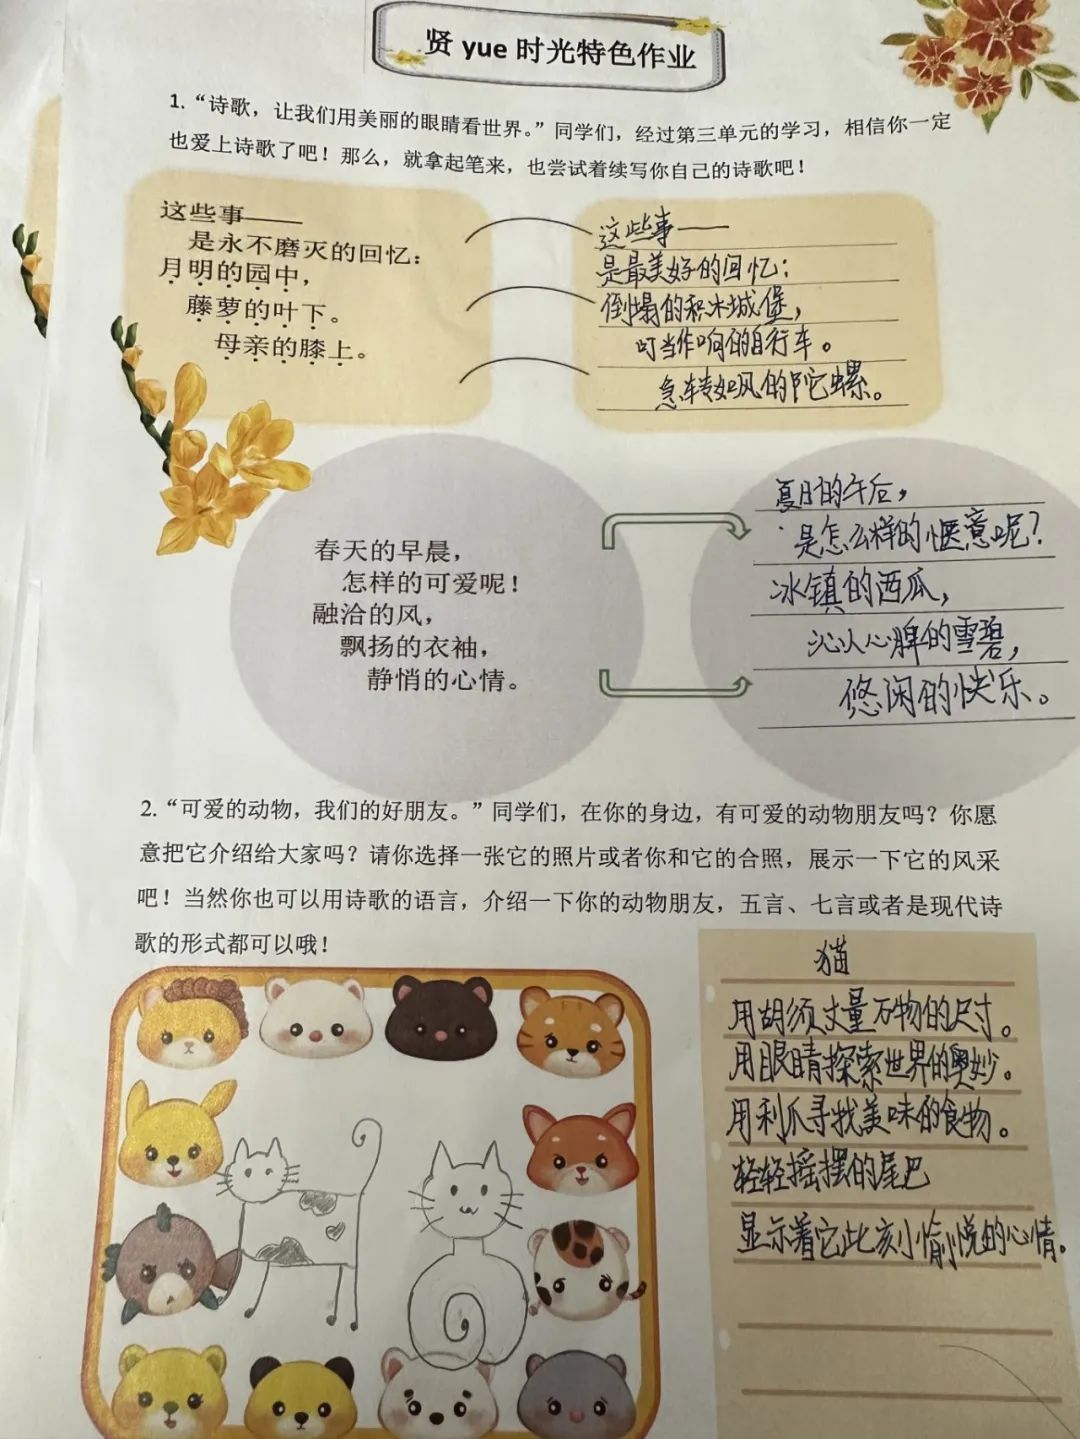 贤 yue 时光特色作业
1.“诗歌，让我们用美丽的眼睛看世界。”同学们，经过第三单元的学习，相信你一定
也爱上诗歌了吧！那么，就拿起笔来，也尝试着续写你自己的诗歌吧！
这些事——
是永不磨灭的回忆：
月明的园中，
藤萝的叶下。
母亲的膝上。
这些事——
是最美好的回忆：
倒塌的积木城堡，
叮当作响的自行车。
急转如风的陀螺。
春天的早晨，
怎样的可爱呢！
融洽的风，
飘扬的衣袖，
静悄的心情。
夏日的午后，
是怎么样的惬意呢？
冰镇的西瓜，
沁人心脾的雪碧，
悠闲的快乐。
2.“可爱的动物，我们的好朋友。”同学们，在你的身边，有可爱的动物朋友吗？你愿
意把它介绍给大家吗？请你选择一张它的照片或者你和它的合照，展示一下它的风采
吧！当然你也可以用诗歌的语言，介绍一下你的动物朋友，五言、七言或者是现代诗
歌的形式都可以哦！
猫
用胡须丈量万物的尺寸。
用眼睛探索世界的奥妙。
用利爪寻找美味的食物。
轻轻摇摆的尾巴
显示着它此刻愉悦的心情。